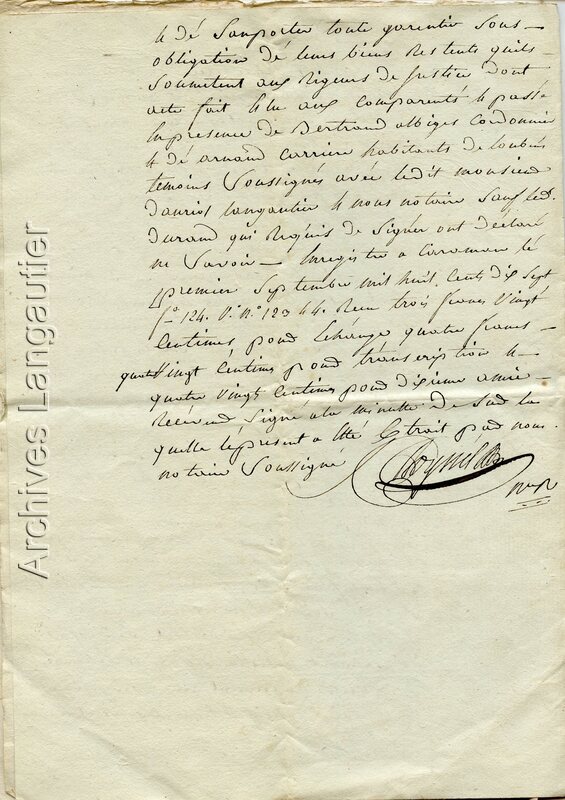 & de Sanporter toute garentie Sous—
obligation dé leurs biens Restents quils
Soumetent aux Rigeurs de Justice dont
acte fait & lu aux comparents & passé
En presence de Bertrand albiges Cordonnier
& dé arnaud Carriere habitants de
temoins Soussignés avéc ledit monsieur
dauriol langautier & nous notaire Sauf led.
durand qui Requis de Signer ont déclaré
ne Savoir — Enregistré a Caraman le
premier Septembre mil huit Cents dix Sept
f.o 124. V.o N.o 123 44. Recu trois francs Vingt
Centimes pour Echange quatre francs—
quatre Vingt Centimes pour transcription &—
quatre Vingt Centimes pour dixieme
Signé a la minutte de Sur la
quelle lepresent a été Extrait par nous
notaire Soussigné
Archives Langautier